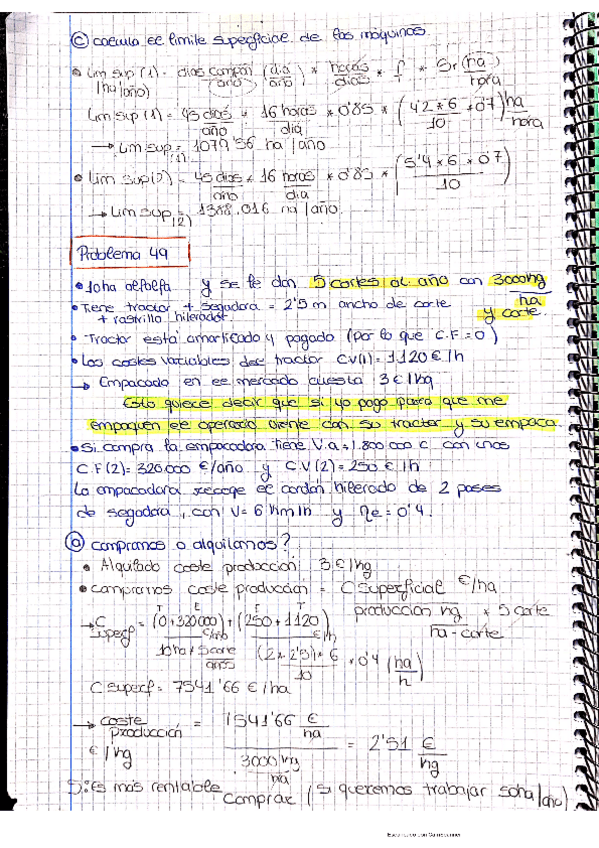 c) calcula el limite superficial de las máquinas
• Lim sup (1) = días campaña (día/año) * horas/días * f * Sr (ha/hora)
(ha/año)
Lim sup (1) = 45 días/año * 16 horas/día * 0'85 * (4'2*6/10 * 0'7) ha/hora
→ Lim sup (1) = 1079'56 ha/año
• Lim sup(2) = 45 días/año * 16 horas/día * 0'85 * (5'4 * 6 * 0'7 / 10)
→ Lim sup (2) = 1388.016 ha/año.
Problema 49
• 10ha alfalfa y se le dan 5 cortes al año con 3000kg/ha y corte.
• Tiene tractor + segadora = 2'5 m ancho de corte
+ rastrillo hilerador
• Tractor está amortizado y pagado (por lo que C.F = 0)
• Los costes variables del tractor CV(1) = 1120 €/h
→ Empacado en el mercado cuesta 3€/kg
Esto quiere decir que si yo pago para que me
empaquen el operario viene con su tractor y su empaca.
• Si compra la empacadora tiene V.a = 1.800.000 € con unos
C.F(2) = 320.000 €/año y C.V(2) = 250 €/h
La empacadora recoge el cordón hilerado de 2 pases
de segadora, con V = 6 km/h y ηe = 0'4.
a) compramos o alquilamos?
• Alquilado coste producción 3€/kg
• compramos coste producción = C superficial €/ha / producción kg/ha-corte * 5 corte
T E E T
→ C superf = (0+320000) €/año / 10ha * 5 corte/año + (250+1120) €/h / (2*2'5)*6/10 * 0'4 (ha/h)
C superf = 7541'66 €/ha
→ coste producción €/kg = 7541'66 €/ha / 3000 kg/ha = 2'51 €/kg
S: Es más rentable comprar (si queremos trabajar 50ha/año)
Escaneado con CamScanner